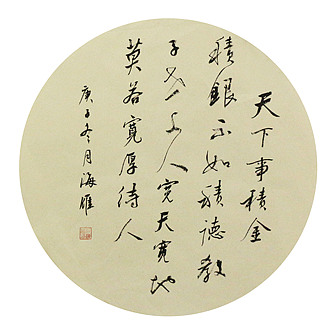 天下事積金
積銀不如積德教
子人寬天寬地
莫若寬厚待人
庚子冬月海雁